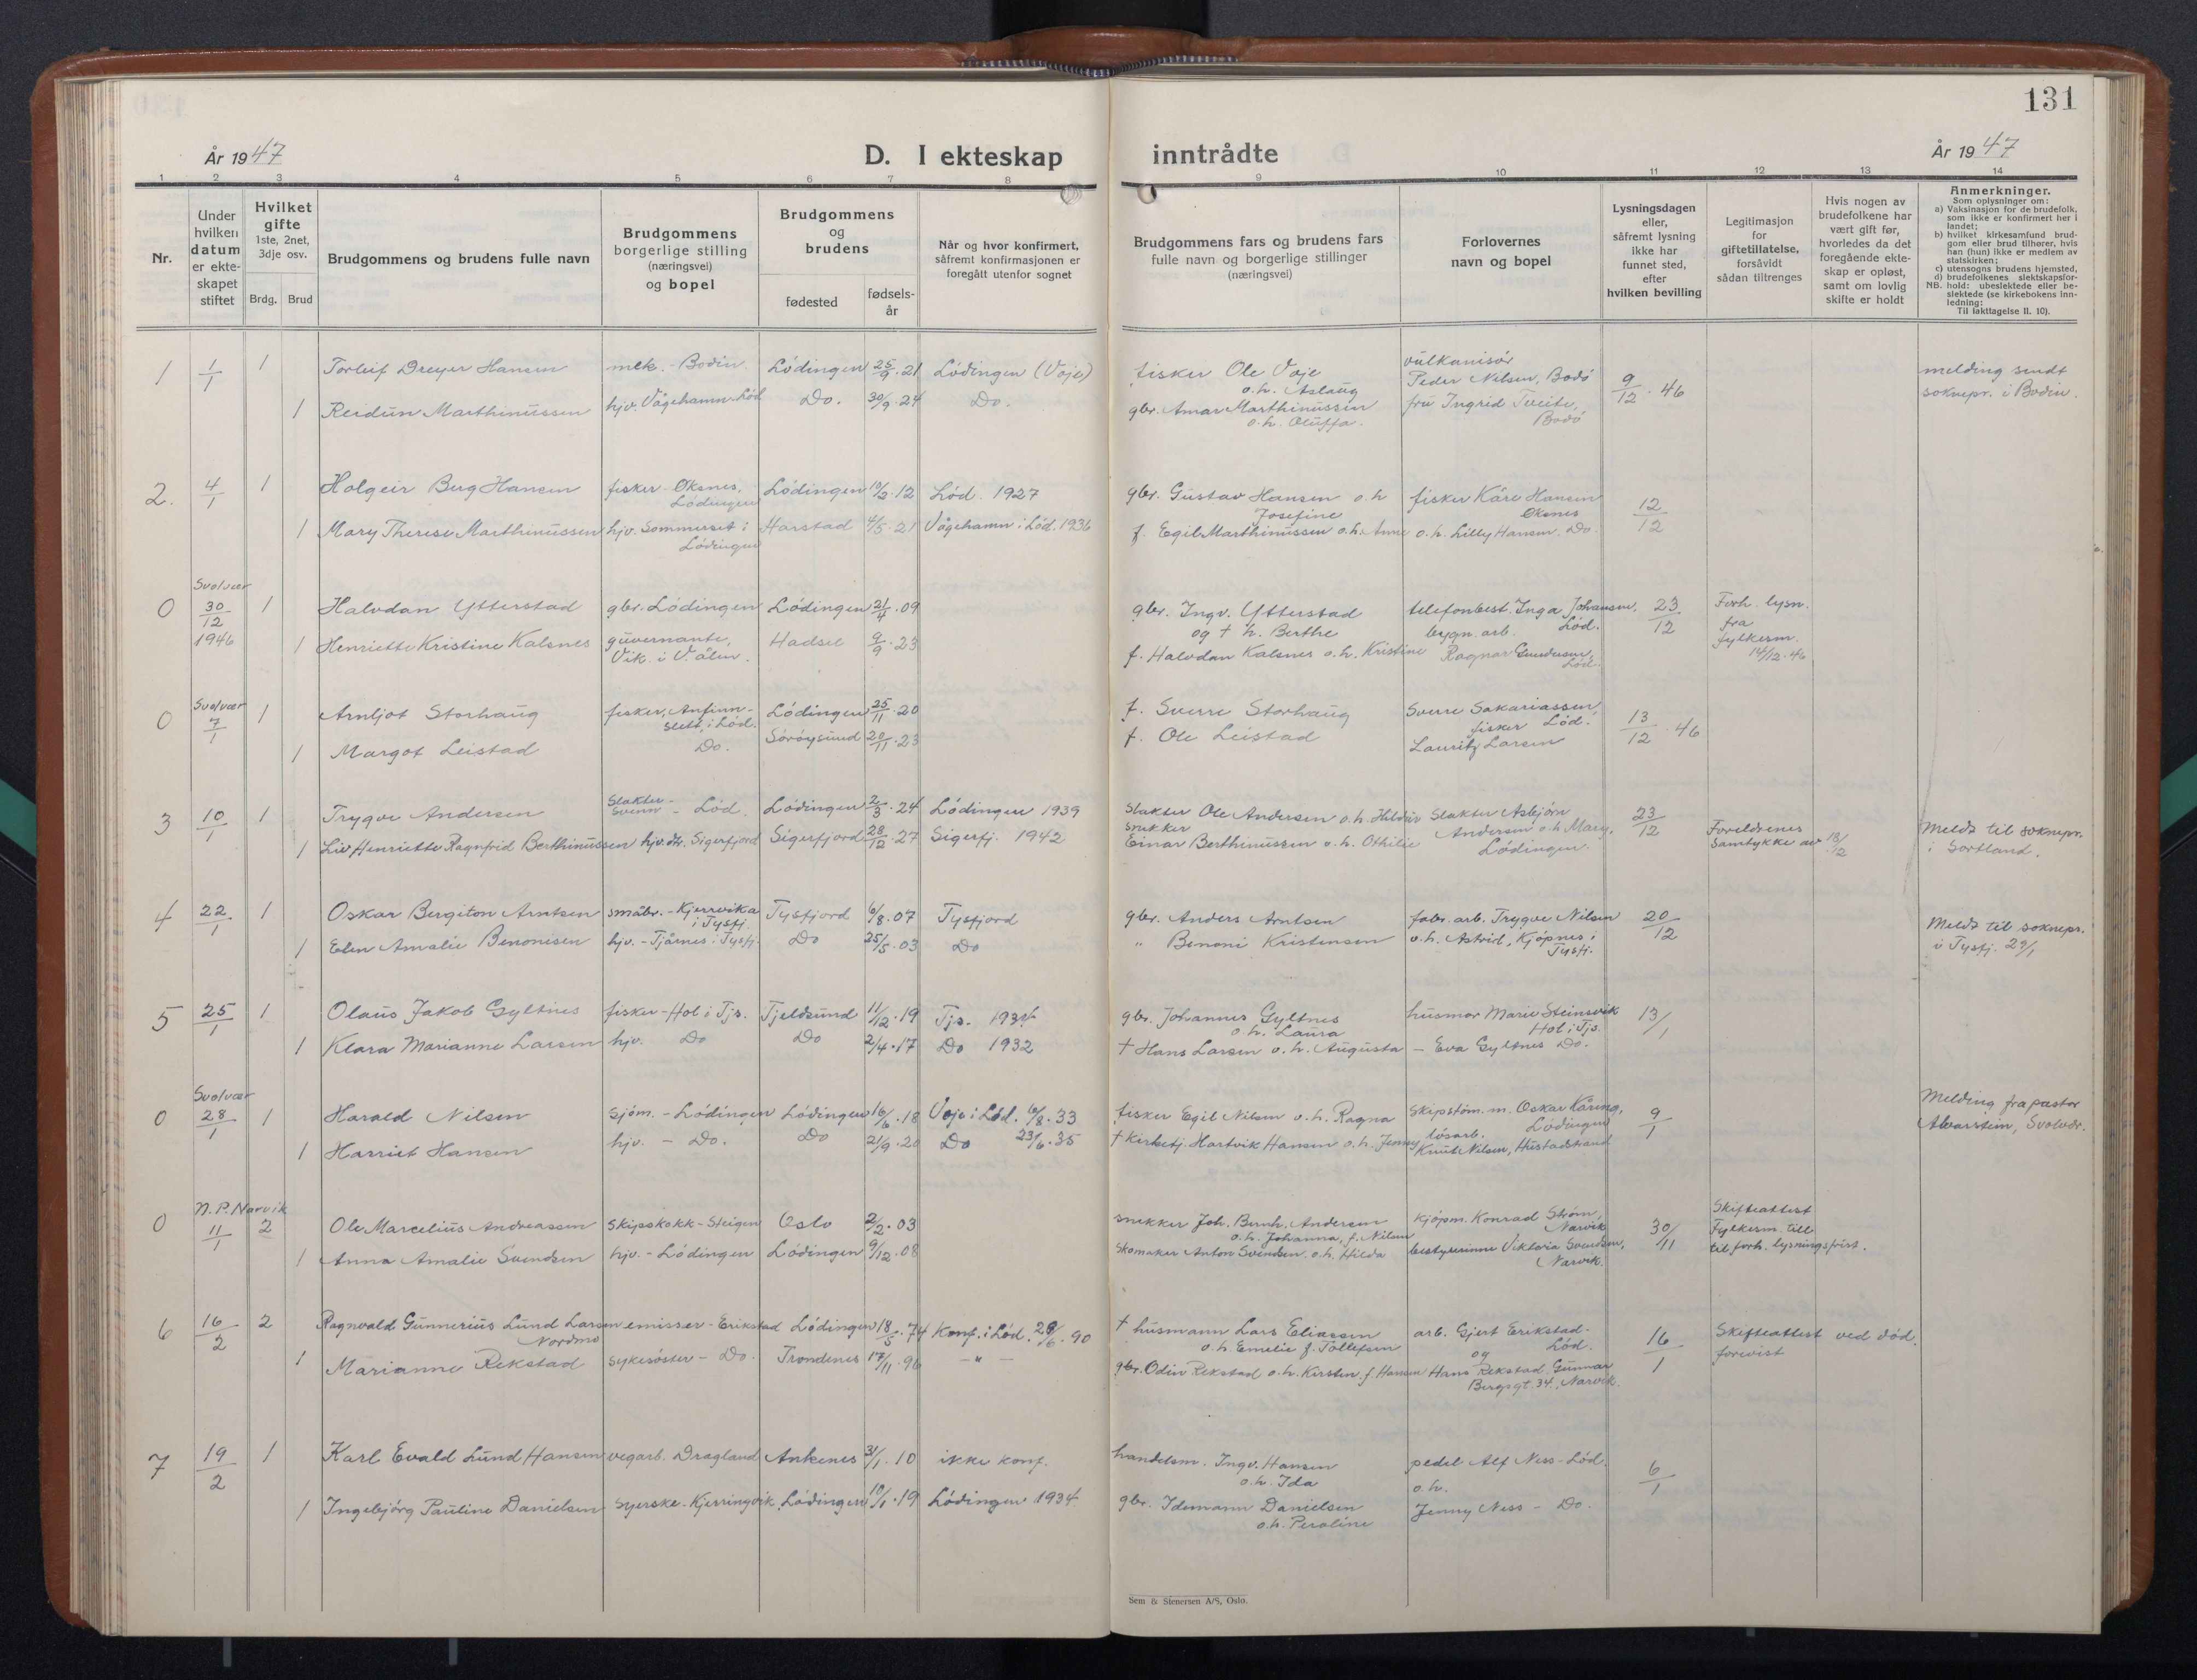 131
År 1947
D. I ekteskap
inntrådte
År 1947
1 2 3 4 5 6 7 8 9 10 11 12 13 14
Nr.
Under
hvilken
datum
er ekte-
skapet
stiftet
Hvilket
gifte
1ste, 2net,
3dje osv.
Brdg. Brud
Brudgommens og brudens fulle navn
Brudgommens
borgerlige stilling
(næringsvei)
og bopel
Brudgommens
og
brudens
fødested
fødsels-
år
Når og hvor konfirmert,
såfremt konfirmasjonen er
foregått utenfor sognet
Brudgommens fars og brudens fars
fulle navn og borgerlige stillinger
(næringsvei)
Forlovernes
navn og bopel
Lysningsdagen
eller,
såfremt lysning
ikke har
funnet sted,
efter
hvilken bevilling
Legitimasjon
for
giftetillatelse,
forsåvidt
sådan tiltrenges
Hvis nogen av
brudefolkene har
vært gift før,
hvorledes da det
foregående ekte-
skap er opløst,
samt om lovlig
skifte er holdt
Anmerkninger.
Som oplysninger om:
a) Vaksinasjon for de brudefolk,
som ikke er konfirmert her i
landet;
b) hvilket kirkesamfund brud-
gom eller brud tilhører, hvis
han (hun) ikke er medlem av
statskirken;
c) utensogns brudens hjemsted,
d) brudefolkenes slektskapsfor-
NB. hold: ubeslektede eller be-
slektede (se kirkebokens inn-
ledning:
Til iakttagelse II. 10).
1 1/1 1 Torleif Dreyer Hansen mek. - Bodin Lødingen 25/9.21 Lødingen (Voje) fisker Ole Voje o.h. Aslaug vulkanisør Peder Nilsen, Bodø 9/12.46 melding sendt
1 Reidun Marthinussen hjv. Vågehamn. Lød. Do. 30/9.24 Do. gbr. Amar Marthinussen o.h. Oluffa. fru Ingrid Tveite, Bodø soknepr. i Bodin.
2. 4/1 1 Holgeir Berg Hansen fisker Øksnes, Lødingen Lødingen 10/2.12 Lød. 1927 gbr. Gustav Hansen o.h Josefine fisker Kåre Hansen Øksnes 12/12
1 Mary Therese Marthinussen hjv. Sommerset i Lødingen Harstad 4/5.21 Vågehamn i Lød. 1936 f. Egil Marthinussen o.h. Anne o.h. Lilly Hansen, Do.
0 Svolvær 30/12 1946 1 Halvdan Ytterstad gbr. Lødingen Lødingen 21/4.09 gbr. Ingv. Ytterstad og † h. Berthe telefonbest. Inga Johansen, Lød. 23/12 Forh. lysn. fra fylkesm. 14/12.46
1 Henriette Kristine Kalsnes guvernante, Vik i V.ålen. Hadsel 9/9.23 f. Halvdan Kalsnes o.h. Kristine bygn. arb. Ragnar Gundersen, Lød.
0 Svolvær 7/1 1 Arnljot Storhaug fisker, Anfinn-slett, i Lød. Lødingen 25/11.20 f. Sverre Storhaug Sverre Sakariassen, fisker Lød. 13/12.46
1 Margot Leistad Do. Sørøysund 20/11.23 f. Ole Leistad Lauritz Larsen
3 10/1 1 Trygve Andersen Slakter-svenn - Lød. Lødingen 2/3.24 Lødingen 1939 slakter Ole Andersen o.h. Hildur Slakter Asbjørn 23/12 Foreldrenes samtykke av 18/12 Meldt til soknepr. i Sortland.
1 Liv Henriette Ragnfrid Berthinussen hjv. dtr. Sigerfjord Sigerfjord 28/12.27 Sigerfj. 1942 snikker Einar Berthinussen o.h. Othilie Andersen o.h Mary, Lødingen.
4 22/1 1 Oskar Bergiton Arntsen småbr. - Kjerrvika i Tysfj. Tysfjord 6/8.07 Tysfjord gbr. Anders Arntsen fabr. arb. Trygve Nilsen 20/12 Meldt til soknepr. i Tysfj. 29/1
1 Elen Amalie Benonisen hjv. - Tjårnes i Tysfj. Do 25/5.03 Do " Benoni Kristensen o.h. Astrid, Kjöpnes i Tysfj.
5 25/1 1 Olaus Jakob Gyltnes fisker - Hol i Tjs. Tjeldsund 11/12.19 Tjs. 1934 gbr. Johannes Gyltnes o.h. Laura husmor Marie Steinsvik Hol i Tjs. 13/1
1 Klara Marianne Larsen hjv. Do Do 2/4.17 Do 1932 † Hans Larsen o.h. Augusta - Eva Gyltnes Do.
0 Svolvær 28/1 1 Harald Nilsen sjöm. - Lødingen Lødingen 16/6.18 Voje i Lød. 6/8.33 fisker Egil Nilsen o.h. Ragna Skipstöm. m. Oskar Kåring, Lødingen 9/1 Melding fra pastor Alvarstein, Svolvær.
1 Harriet Hansen hjv. - Do. Do 21/9.20 Do 23/6.35 † Kirketj. Hartvik Hansen o.h. Jenny lösarb. Knut Nilsen, Hustadstrand
0 N.P. Narvik 11/1 2 Ole Marcelius Andreassen Skipskokk - Steigen Oslo 2/2.03 snikker Joh. Bernh. Andersen o.h. Johanna, f. Nilsen kjöpm. Konrad Ström, Narvik 30/11 Skifteattest Fylkesm. till til forh. lysningsfrist.
1 Anna Amalie Svendsen hjv. - Lødingen Lødingen 9/12.08 Skomaker Anton Svendsen, o.h. Hilda bestyrerinne Viktoria Svendsen, Narvik.
6 16/2 2 Ragnvald Gunnerius Lund Larsen Nordmo emissær - Erikstad Lødingen 18/5.74 Konf. i Lød. 29/6.90 † husmann Lars Eliassen o.h. Emelie f. Tollefsen arb. Gjert Erikstad - Lød. og 16/1 Skifteattest ved död. forevist
1 Marianne Rekstad sykesøster - Do. Trondenes 17/11.96 - " - gbr. Odin Rekstad o.h. Kirsten f. Hansen Hans Rekstad Gunnar Bergsgt. 34, Narvik.
7 19/2 1 Karl Evald Lund Hansen vegarb. Dragland Ankenes 31/1.10 ikke konf. handelsm. Ingv. Hansen o.h. Ida pedel Alf Ness - Lød. o.h. 6/1
1 Ingebjörg Pauline Danielsen syerske - Kjerringvik, Lødingen 10/1.19 Lødingen 1934. gbr. Idemann Danielsen o.h. Peraline Jenny Ness - Do.
Sem & Stenersen A/S, Oslo.